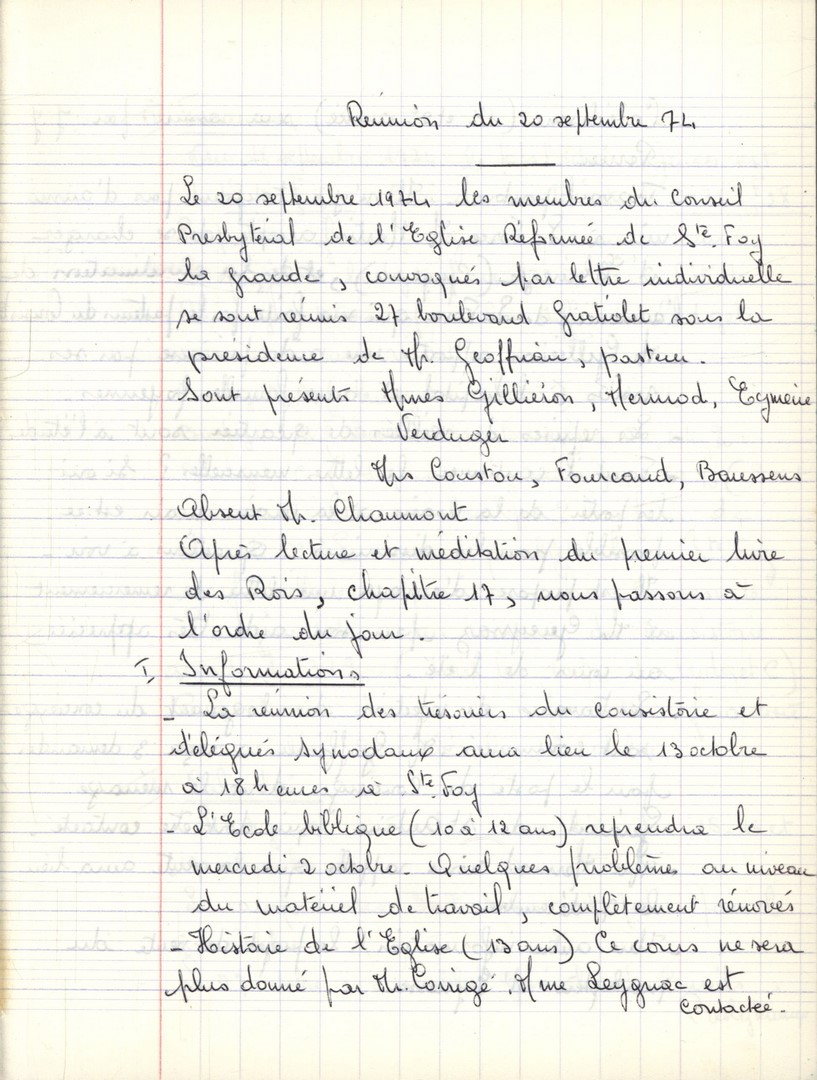 Réunion du 20 septembre 74
Le 20 septembre 1974 les membres du Conseil
Presbytéral de l'Eglise Réformée de Ste. Foy
la grande, convoqués par lettre individuelle
se sont réunis 27 boulevard Gratiolet sous la
présidence de Mr. Geoffriau, pasteur.
Sont présents Mmes Gilliéron, Mermod, Eymerie
Verduger
Mrs Coustou, Fourcaud, Baussens
Absent Mr. Chaumont
Après lecture et méditation du premier livre
des Rois, chapître 17, nous passons à
l'ordre du jour.
I Informations
- La réunion des trésoriers du consistoire et
délégués synodaux aura lieu le 13 octobre
à 18 heures à Ste. Foy
- L'Ecole biblique (10 à 12 ans) reprendra le
mercredi 2 octobre. Quelques problèmes au niveau
du matériel de travail, complètement rénovés
- Histoire de l'Eglise (13 ans) Ce cours ne sera
plus donné par Mr. Corrigé. Mme Leygnac est
contactée.